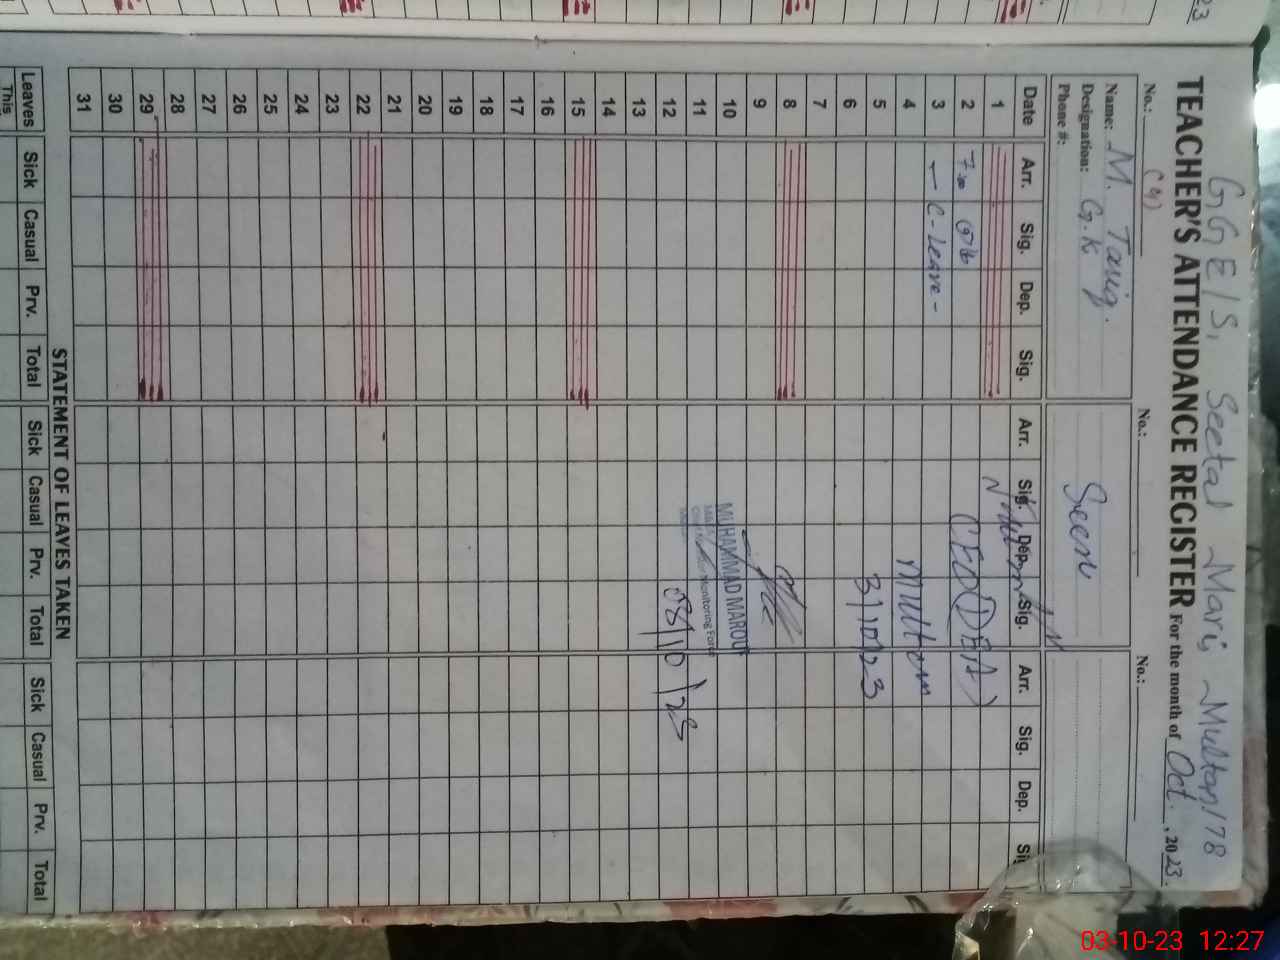 23
GGE/S, Seetal Mari, Multan/178
TEACHER'S ATTENDANCE REGISTER For the month of Oct. , 2023.
No.: (4) No.: No.:
Name: M. Tariq. Seen
Designation: G.K
Phone #:
Date Arr. Sig. Dep. Sig. Arr. Sig. Dep. Sig. Arr. Sig. Dep. Si
1
2 7:00 CEO(DEA)
3 - C-Leave -
4 Multan
5 3/10/23
6
7
8
9
10 MUHAMMAD MAROUF
11 Monitoring Force
12 03/10/23
13
14
15
16
17
18
19
20
21
22
23
24
25
26
27
28
29
30
31
STATEMENT OF LEAVES TAKEN
Leaves Sick Casual Prv. Total Sick Casual Prv. Total Sick Casual Prv. Total
This
03-10-23 12:27